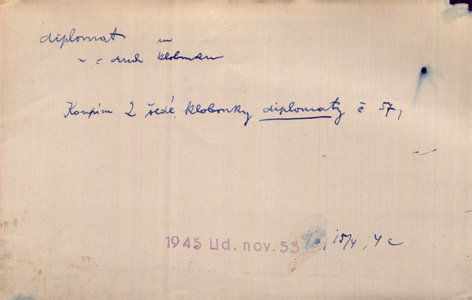 diplomat m
druh klobouku
Koupím 2 šedé klobouky diplomaty č 57,
1945 Lid. nov. 53 15/4, 4 c